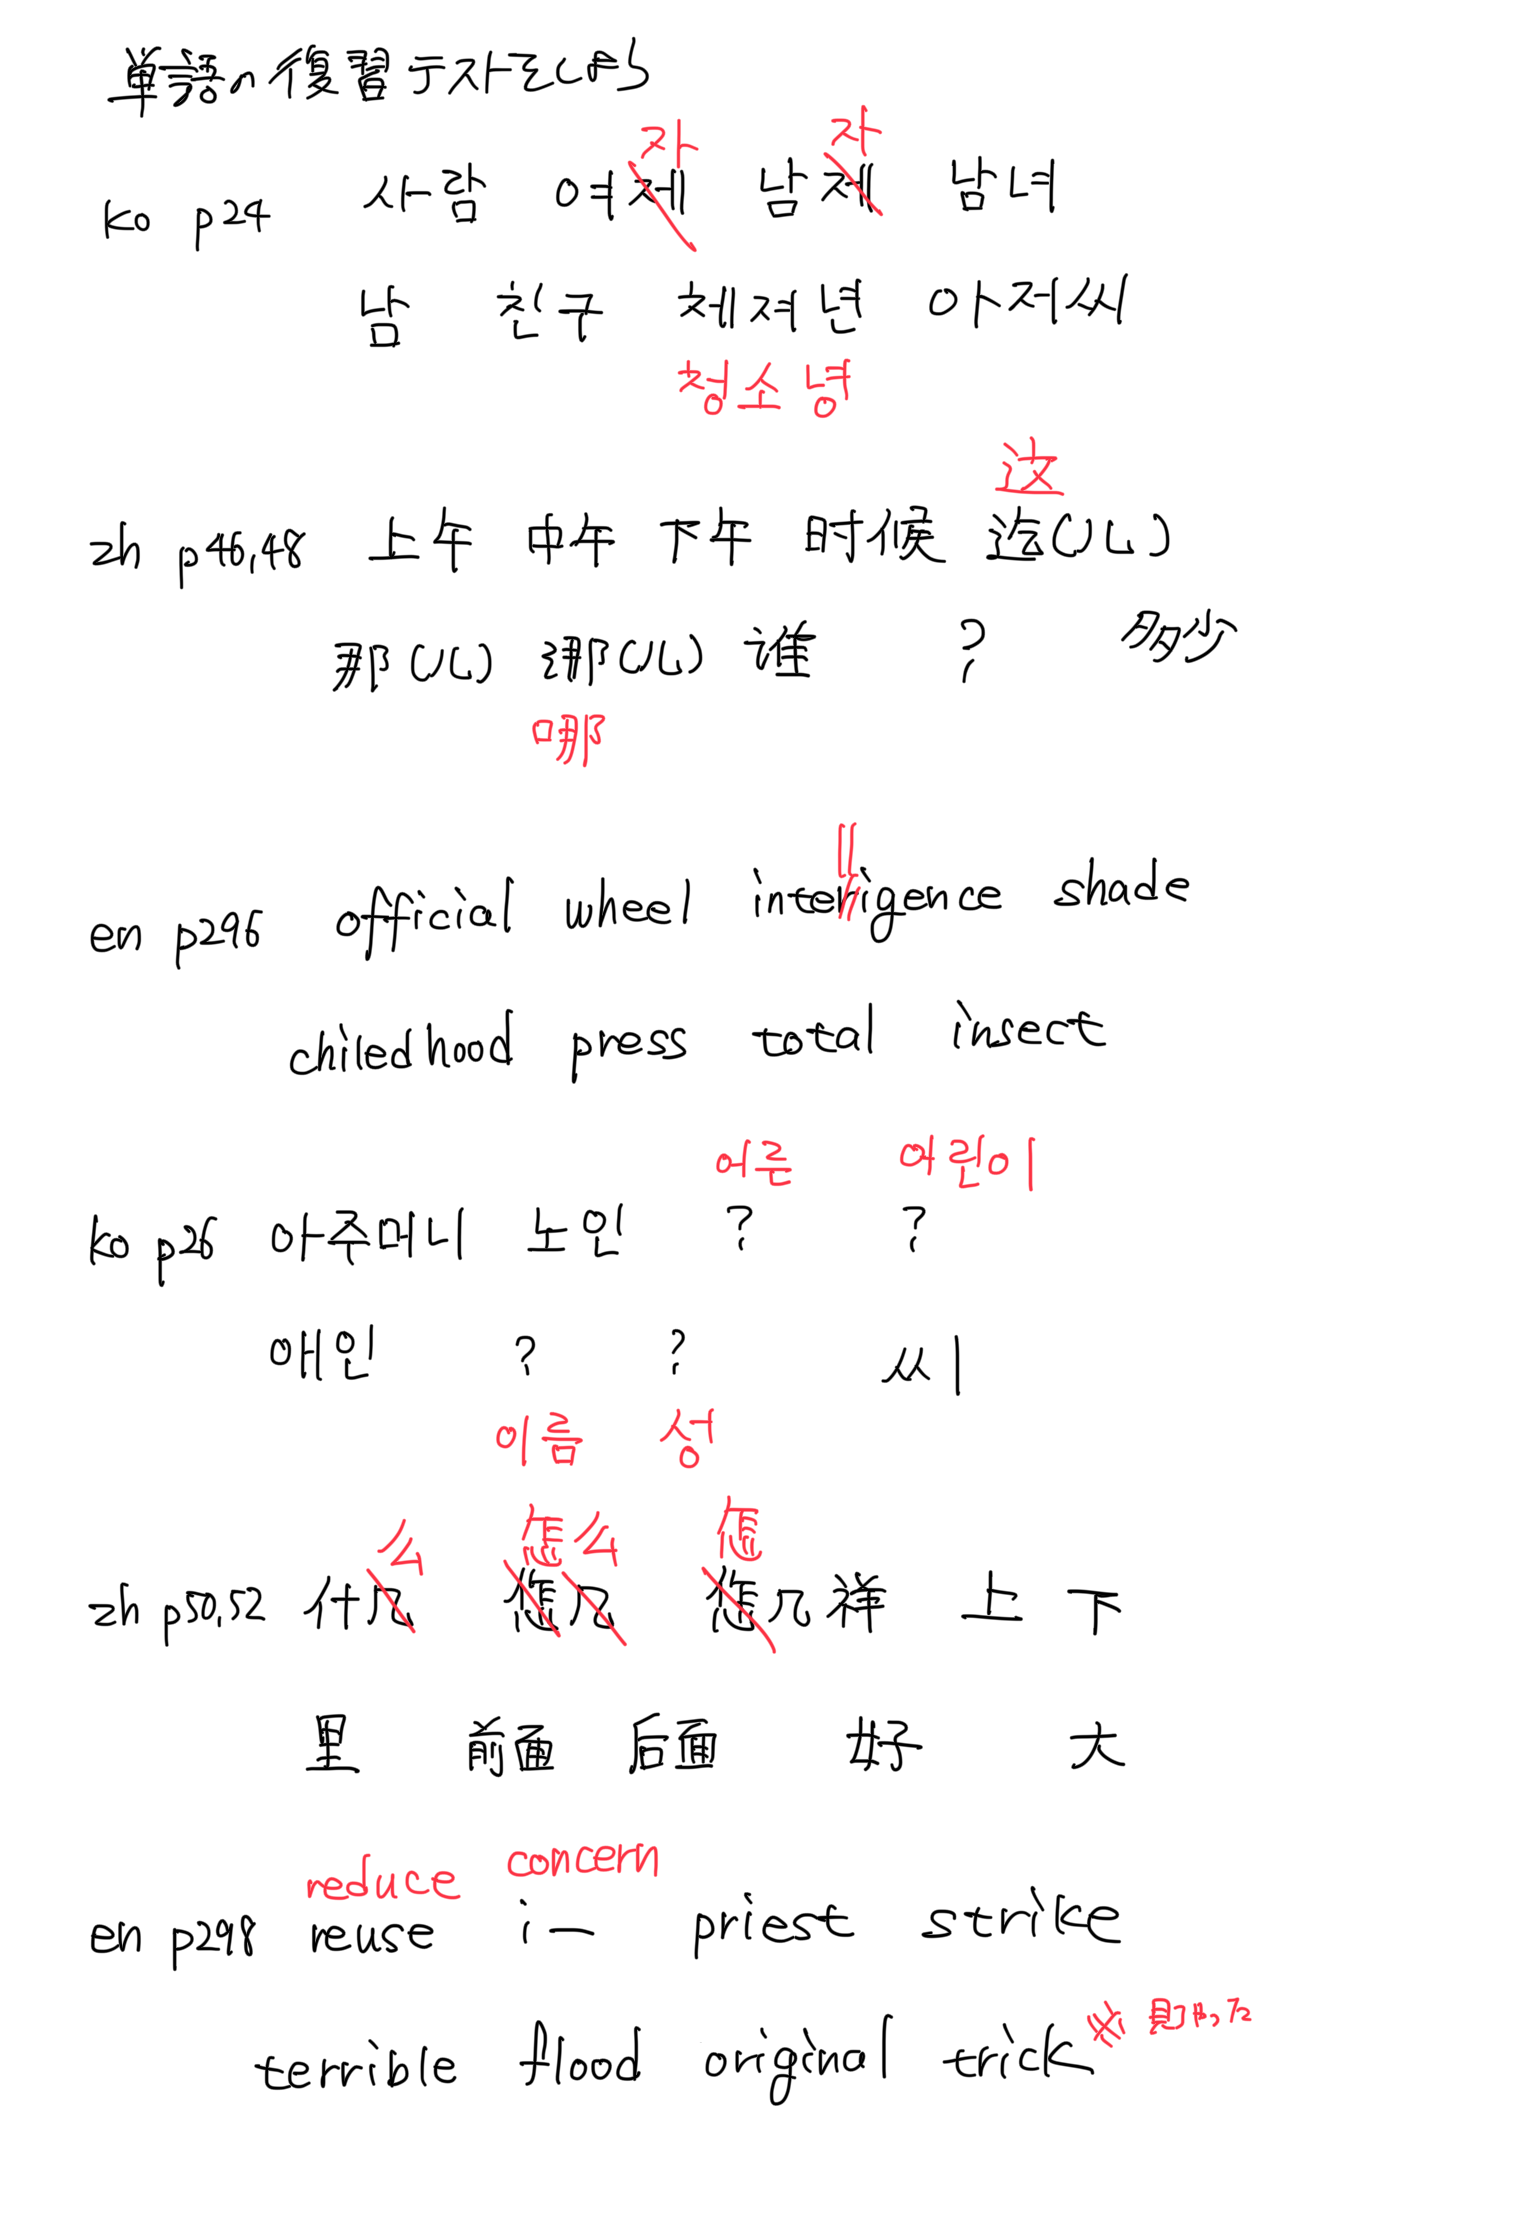 単語の復習テストをしよう
자 자
ko p24 사람 여제 남제 남녀
남 친구 체져년 아저씨
청소녕
这
zh p46,48 上午 中午 下午 时候 迄(儿)
那(儿) 哪(儿) 谁 ? 多少
哪
ll
en p296 official wheel interigence shade
chiledhood press total insect
어른 어린이
ko p26 아주머니 노인 ? ?
애인 ? ? 씨
이름 성
么 怎么 怎
zh p50,52 什几 您几 您几样 上 下
里 前面 后面 好 大
reduce concern
en p298 reuse i— priest strike
terrible flood original trick ※見ちゃった